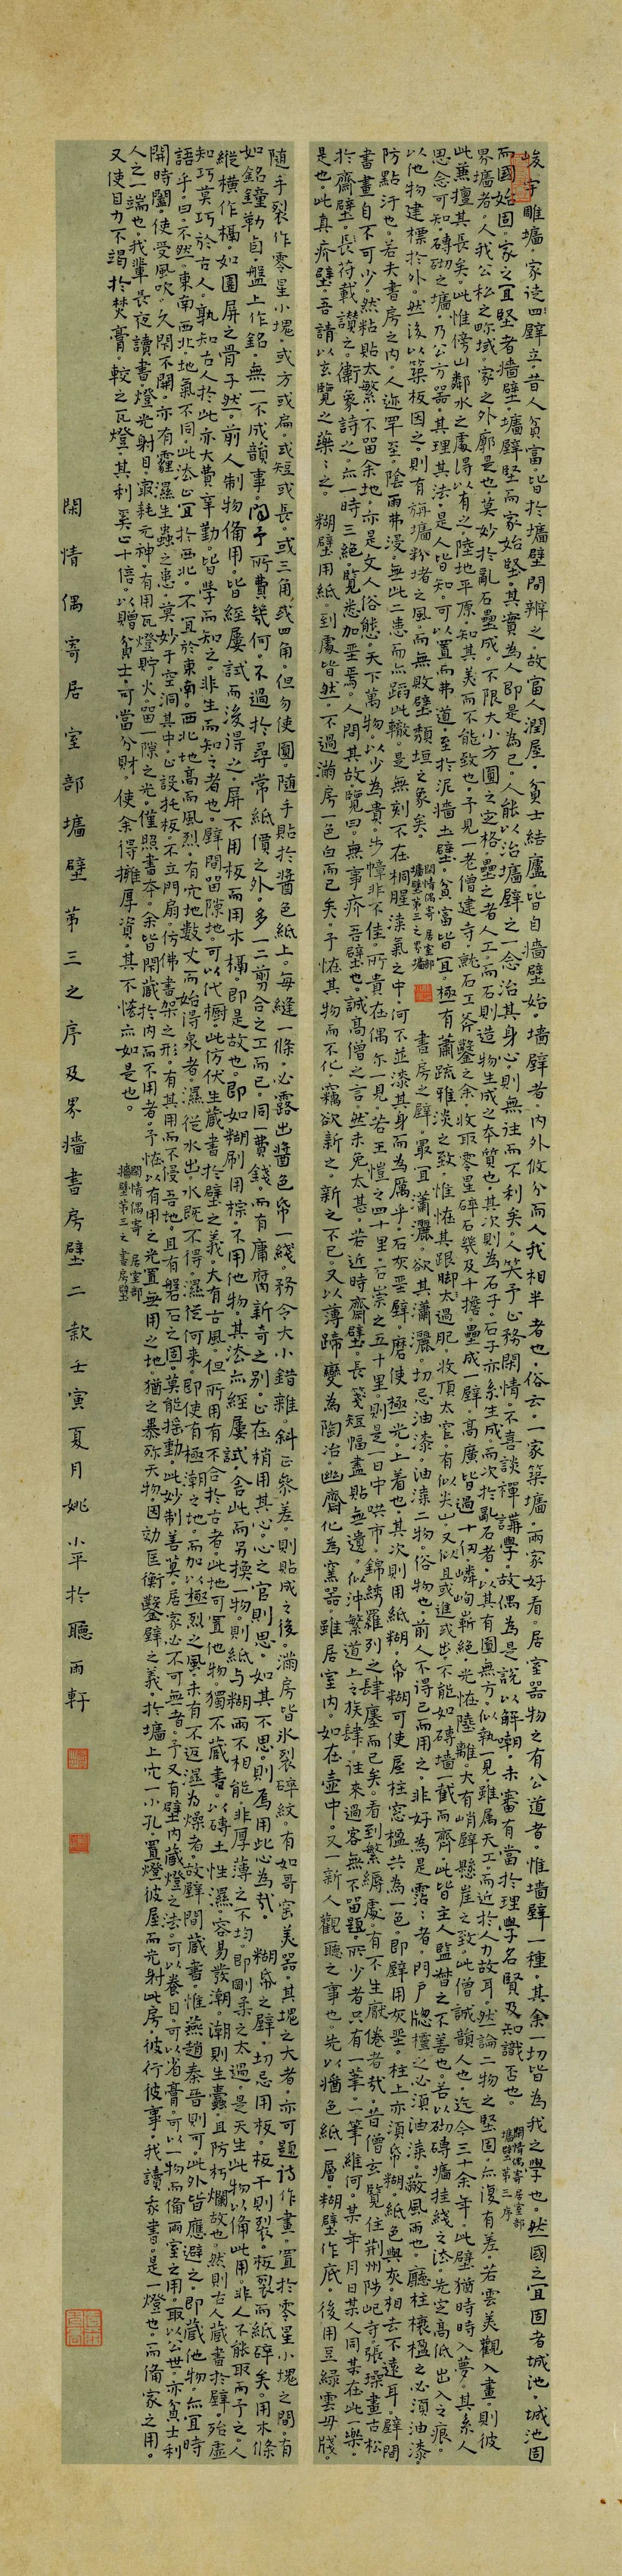 峻宇雕墻。家徒四壁立。昔人貧富。皆於墻壁間辨之。故富人潤屋。貧士結廬。皆自墻壁始。墻壁者。內外攸分而人我相半者也。俗云。一家築墻。兩家好看。居室器物之有公道者。惟墻壁一種。其余一切皆為我之學也。然國之宜固者城池。城池固
而國始固。家之宜堅者墻壁。墻壁堅而家始堅。其實為人即是為己。人能以治墻壁之一念治其身心。則無往而不利矣。人笑予止務閑情。不喜談禪講學。故偶為是說以解嘲。未審有當於理學名賢及知識否也。閑情偶寄居室部墻壁第三序
界墻者。人我公私之畛域。家之外廓是也。莫妙於亂石壘成。不限大小方圓之定格。壘之者人工。而石則造物生成之本質也。其次則為石子。石子亦系生成。而次於亂石者。以其有圓無方。似執一見。雖属天工。而近於人力故耳。然論二物之堅固。亦復有差。若雲美觀入畫。則彼
此兼擅其長矣。此惟傍山鄰水之處得以有之。陸地平原。知其美而不能致也。予見一老僧建寺。就石工斧鑿之余。收取零星碎石幾及千擔。壘成一壁。高廣皆過十仞。嶙峋嶄絕。光怪陸離。大有峭壁懸崖之致。此僧誠韻人也。迄今三十余年。此壁猶時時入夢。其系人
思念可知。磚砌之墻。乃公方器。其理其法。是人皆知。可以置而弗道。至於泥墻土壁。貧富皆宜。極有蕭疏雅淡之致。惟怪其跟脚太過肥。收頂太窄。有似尖山。又且或進或出。不能如磚墻一截而齊。此皆主人監督之不善也。若以砌磚墻挂綫之法。先定高低出入之痕。
以他物建標於外。然後以築板因之。則有旃墻粉堵之風。而無敗壁頹垣之象矣。閑情偶寄居室部墻壁第三之界墻 書房之壁。最宜瀟灑。欲其瀟灑。切忌油漆。油漆二物。俗物也。前人不得已而用之。非好為是沾沾者。門戶牕欞之必須油漆。蔽風雨也。廳柱榱楹之必須油漆。
防點汙也。若夫書房之內。人迹罕至。陰雨弗浸。無此二患而亦蹈此轍。是無刻不在桐腥漆氣之中。何不並漆其身而為厲乎。石灰堊壁。磨使極光。上着也。其次則用紙糊。紙糊可使屋柱窓楹共為一色。即壁用灰堊。柱上亦須紙糊。紙色與灰。相去不遠耳。壁間
書畫自不可少。然粘貼太繁。不留余地。亦是文人俗態。天下萬物。以少為貴。步幛非不佳。所貴在偶尔一見。若王愷之四十里。石崇之五十里。則是一日中哄市。錦綉羅列之肆廛而已矣。看到繁縟處。有不生厭倦者哉。昔僧玄覽住荊州陟屺寺。張璪畫古松
於齋壁。長苻載讚之。衛象詩之。亦一時三絕。覽悉加堊焉。人問其故。覽曰。無事疥吾壁也。誠高僧之言。然未免太甚。若近時齋壁。長箋短幅盡貼無遺。似沖繁道上之旅肆。往來過客無不留題。所少者只有一筆。一筆維何。某年月日某人同某在此一樂。
是也。此真疥壁。吾請以玄覽之藥藥之。糊壁用紙。到處皆然。不過滿房一色白而已矣。予怪其物而不化。竊欲新之。新之不已。又以薄蹄變為陶冶。幽齋化為窯器。雖居室內。如在壺中。又一新人觀聽之事也。先以醬色紙一層。糊壁作底。後用豆綠雲母牋。
隨手裂作零星小塊。或方或扁。或短或長。或三角或四角。但勿使圓。隨手貼於醬色紙上。每縫一條。必露出醬色帋一綫。務令大小錯雜。斜正參差。則貼成之後。滿房皆冰裂碎紋。有如哥窑美器。其塊之大者。亦可題詩作畫。置於零星小塊之間。有
如銘鐘勒卣。盤上作銘。無一不成韻事。問予所費幾何。不過於尋常紙價之外。多一二剪合之工而已。同一費錢。而有庸腐新奇之別。止在稍用其心。心之官則思。如其不思。則焉用此心為哉。糊帋之壁。切忌用板。板干則裂。板裂而紙碎矣。用木條
縱橫作槅。如圍屏之骨子然。前人制物備用。皆經屢試而後得之。屏不用板而用木槅。即是故也。即如糊刷用棕。不用他物。其法亦經屢試。舍此而另換一物。則紙与糊兩不相能。非厚薄之不均。即剛柔之太過。是天生此物以備此用。非人不能取而予之。人
知巧莫巧於古人。孰知古人於此亦大費辛勤。皆學而知之。非生而知之者也。壁間留隙地。可以代櫥。此仿伏生藏書於壁之義。大有古風。但所用有不合於古者。此地可置他物。獨不藏書。以磚土性濕。容易發潮。潮則生蠹。且防朽爛故也。然則古人藏書於壁。殆虛
語乎。曰。不然。東南西北。地氣不同。此法止宜於西北。不宜於東南。西北地高而風烈。有穴地數丈而始得泉者。濕從水出。水既不得。濕從何來。即使有極潮之地。而加以極烈之風。未有不返濕為燥者。故壁間藏書。惟燕趙秦晉則可。此外皆應避之。即藏他物。亦宜時
開時闔。使受風吹。久閉不開。亦有霾濕生蟲之患。莫妙于空洞其中。止設托板。不立門扇。仿佛書架之形。有其用而不侵吾地。且有磐石之固。莫能搖動。此妙制善算。居家必不可無者。予又有壁內藏燈之法。可以養目。可以省膏。可以一物而備兩室之用。取以公世。亦貧士利
人之一端也。我輩長夜讀書。燈光射目。最耗元神。有用瓦燈貯火。留一隙之光。僅照書本。余皆閑藏於內而不用者。予怪以有用之光置無用之地。猶之暴殄天物。因効匡衡鑿壁之義。於墻上穴一小孔。置燈彼屋而光射此房。彼行彼事。我讀我書。是一燈也。而備家之用。
又使目力不竭於焚膏。較之瓦燈。其利奚止十倍。以贈貧士。可當分財。使余得擁厚資。其不悋亦如是也。閑情偶寄居室部墻壁第三之書房壁
閑情偶寄居室部墻壁第三之序及界墻書房壁二款壬寅夏月姚小平於聽雨軒